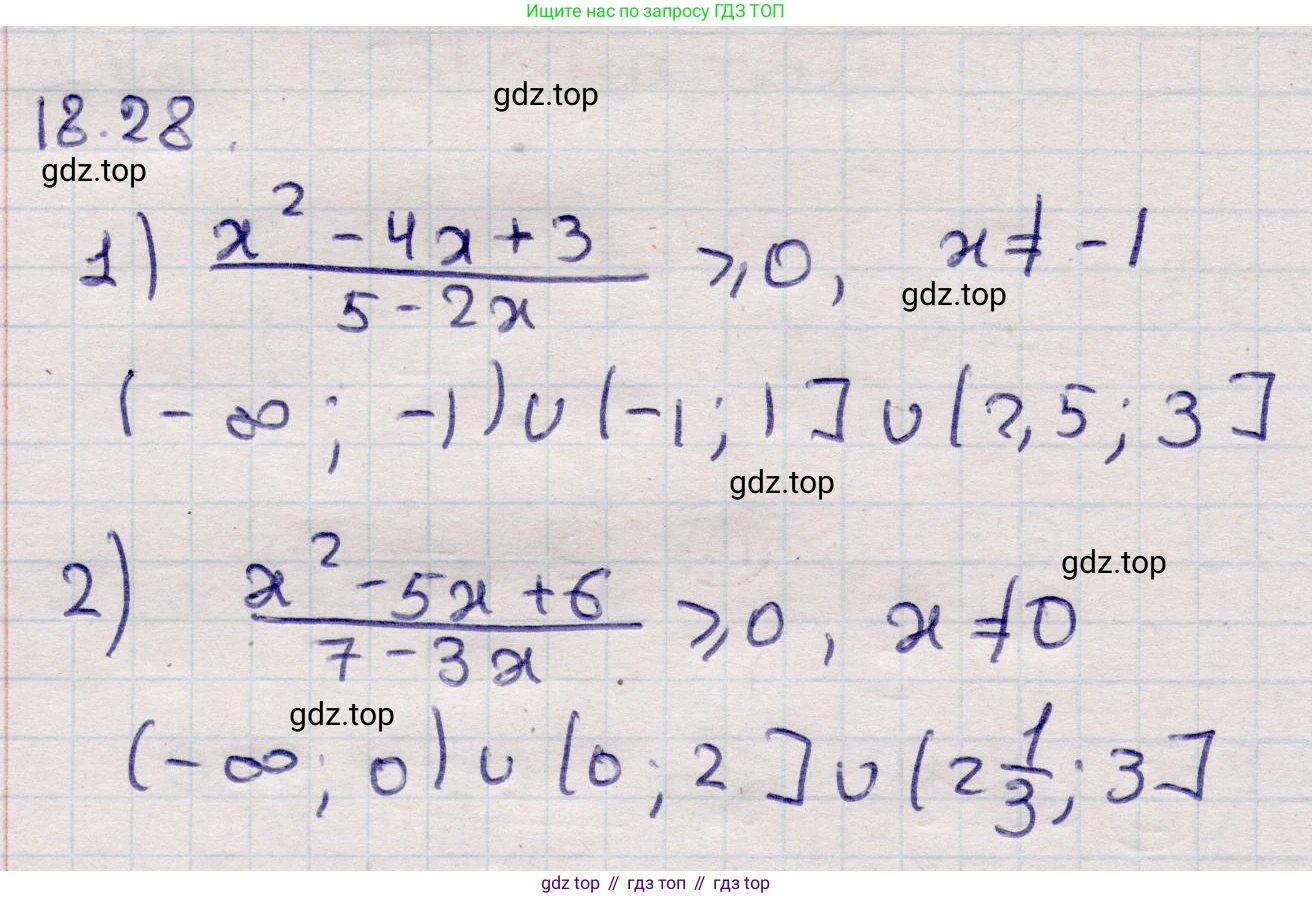 Ищите нас по запросу ГДЗ ТОП
gdz.top
18.28.
gdz.top
1) (x² - 4x + 3)/(5 - 2x) ⩾ 0, x ≠ -1
gdz.top
(-∞; -1) ∪ (-1; 1] ∪ (2,5; 3]
gdz.top
2) (x² - 5x + 6)/(7 - 3x) ⩾ 0, x ≠ 0
gdz.top
gdz.top
(-∞; 0) ∪ (0; 2] ∪ (2 1/3; 3]
gdz top // гдз топ // гдз top